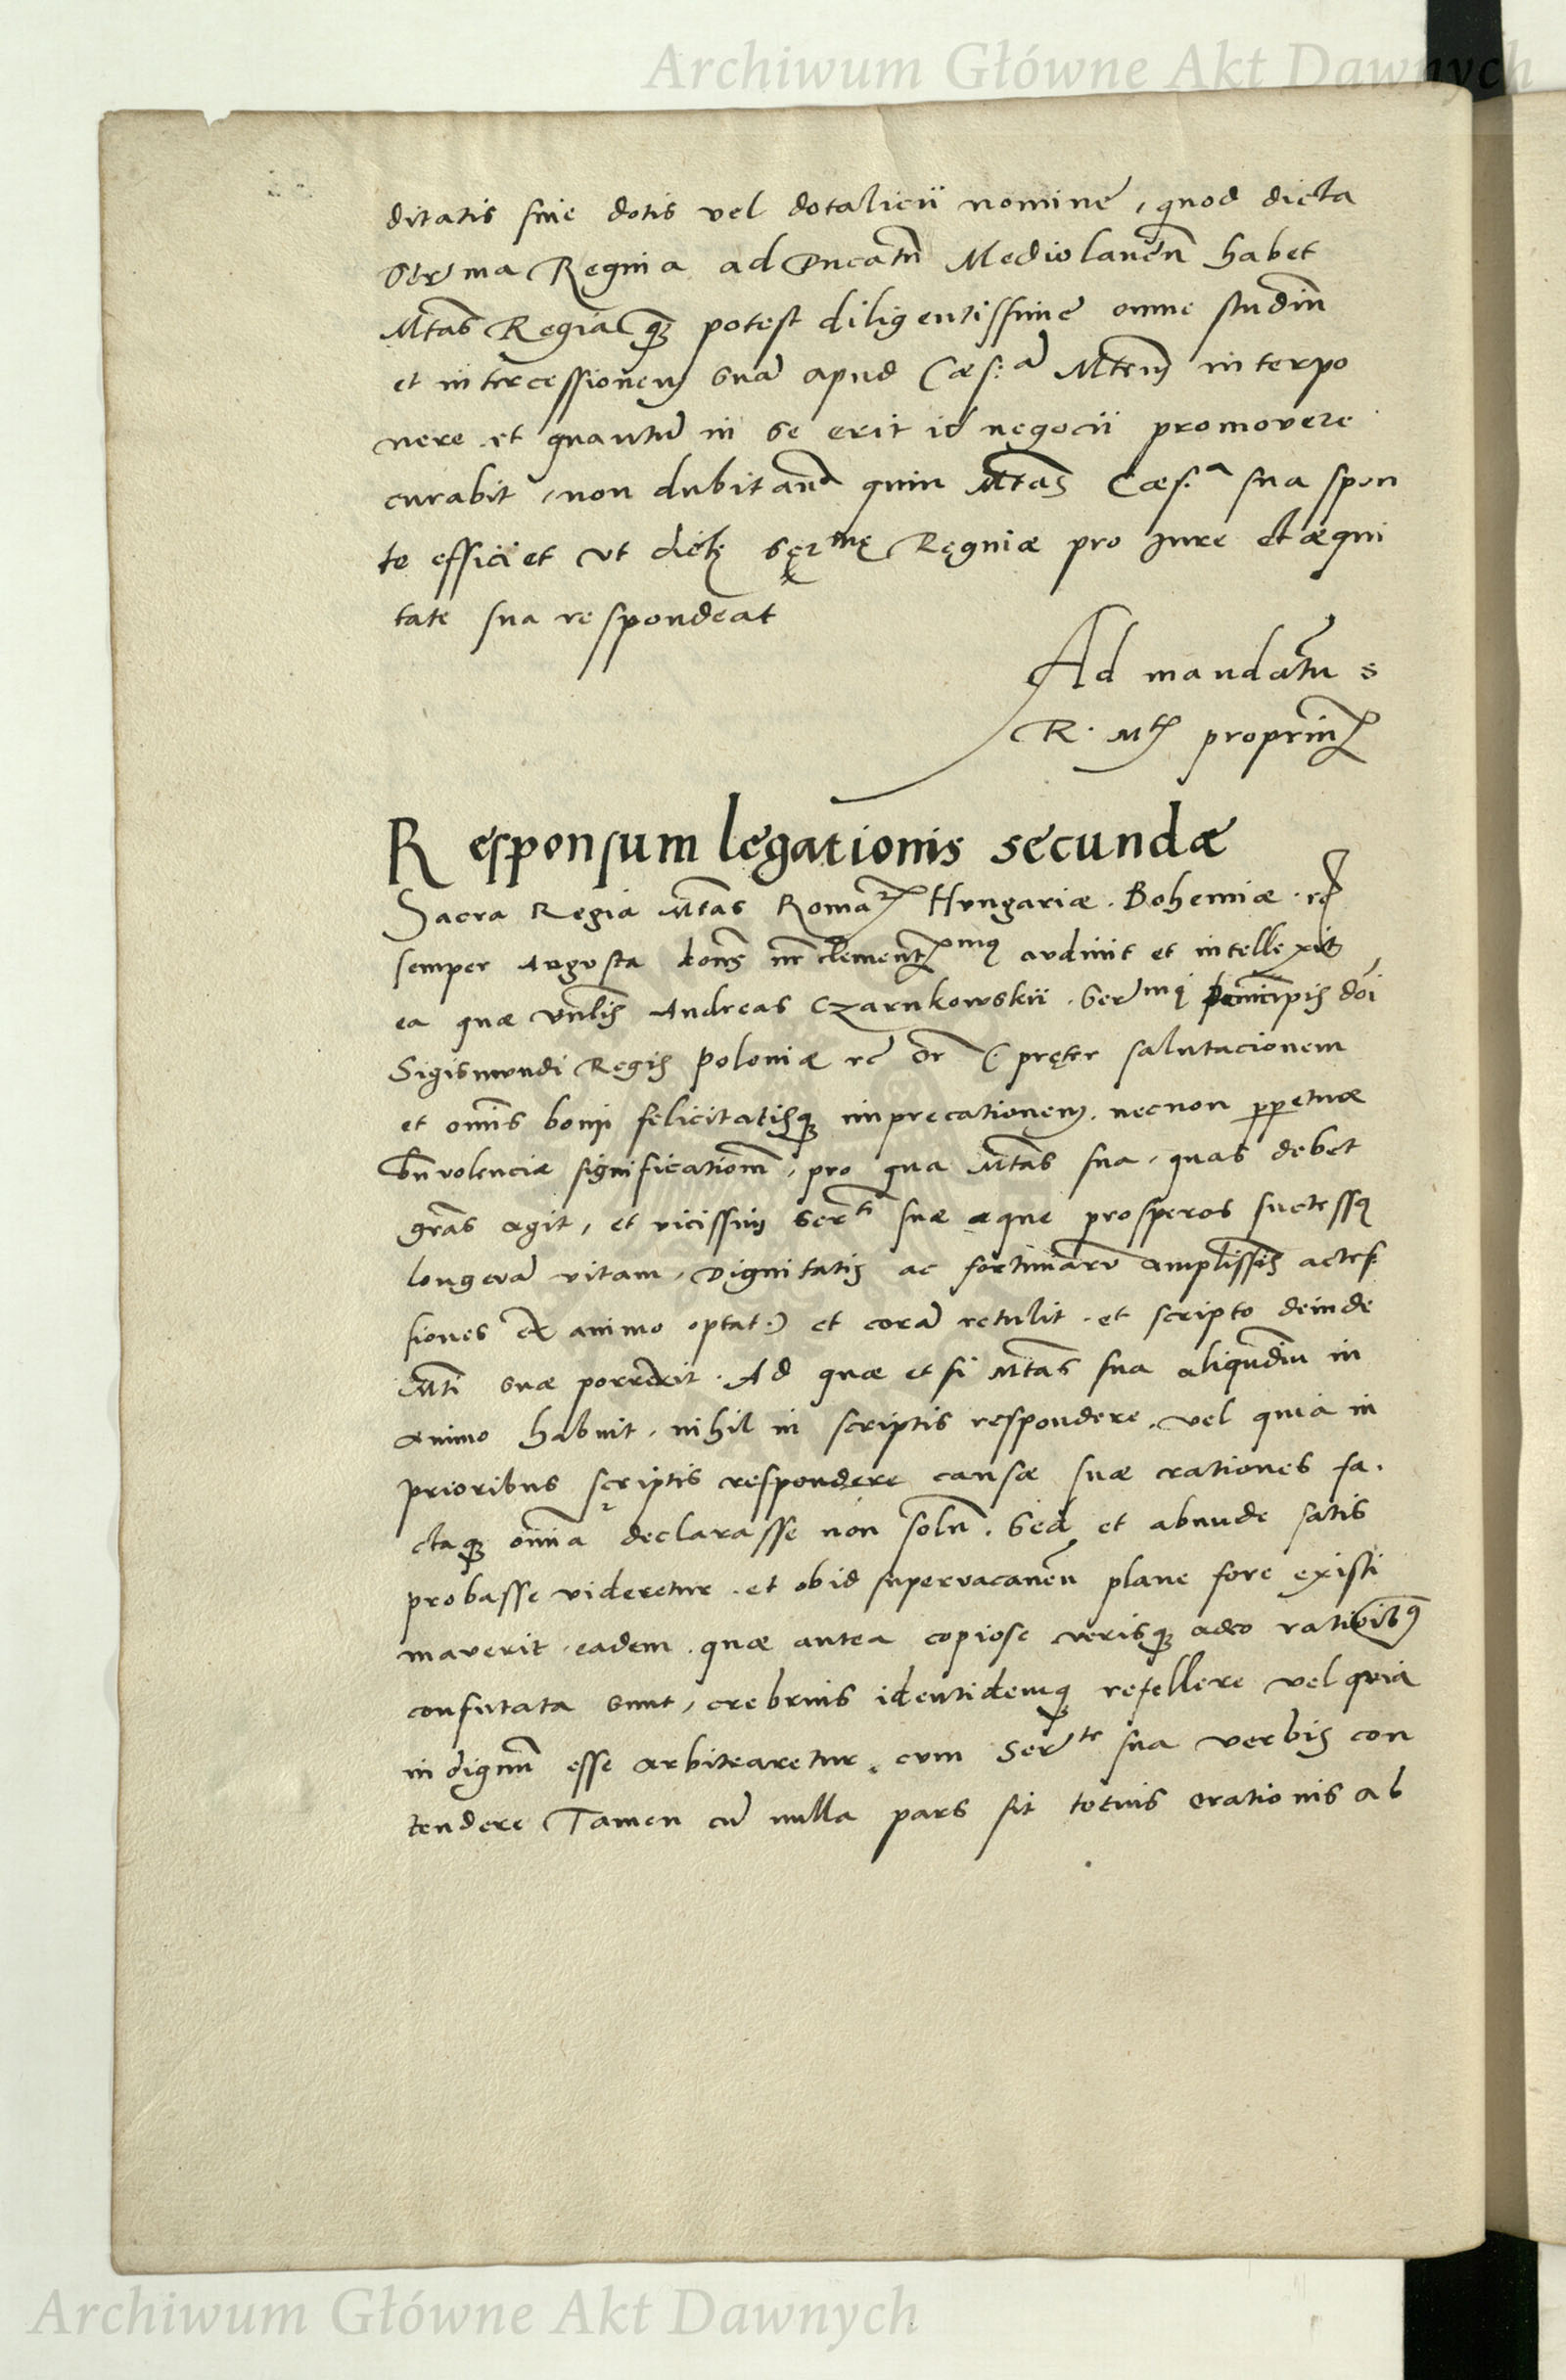 Archiwum Główne Akt Dawnych
ditatis siue dotis vel dotalicii nomine, quod dicta
Serma Regina ad Ducatū Mediolanēn habet
Mtas Regia qȝ potest diligentissime omne studiū
et intercessionem suā apud Cæs:ā Mtem interpo
nere et quantū in se erit id negocii promovere
curabit, non dubitans quin Mtas Cæs.a sua spon
te efficiet vt dictę Sęrmę Reginæ pro jure et æqui
tate sua respondeat
Ad mandatū s
R. Mtis propriū
Responsum legationis secundæ
Sacra Regia Mtas Romanor Hungariæ. Bohemiæ. rc
semper Augusta dons nr clementmus audiuit et intellexit
ea quæ Andreas Czarnkowskii. Sermi principis dōi
Sigismundi Regis Poloniæ rc Or (: pręter salutacionem
et omnis boni felicitatisqȝ imprecationem. necnon ppetuæ
bnvolenciæ significationē, pro qua Mtas sua, quas debet
grās agit, et vicissim Serti suæ æque prosperos successus
longevā vitam, Dignitatis ac fortunarū amplissīs acces
siones ex animo optat:) et corā retulit. et scripto deinde
Mti suæ porrexit. Ad quæ et si Mtas sua aliqūdiu in
animo habuit. nihil in scriptis respondere. vel quia in
prioribus scriptis respondere causæ suæ rationes fa.
ctaqȝ omnia declarasse non solū. Sed et abunde satis
probasse videretur. et obid supervacaneū plane fore existi
maverit. eadem. quæ antea copiose verisqȝ adeo rationibꝰ
confutata sunt, crebrius identidemqȝ refellere vel quia
indignū esse arbitraretur, cum Serte sua verbis con
tendere Tamen cū nulla pars sit totius orationis ab
Archiwum Główne Akt Dawnych